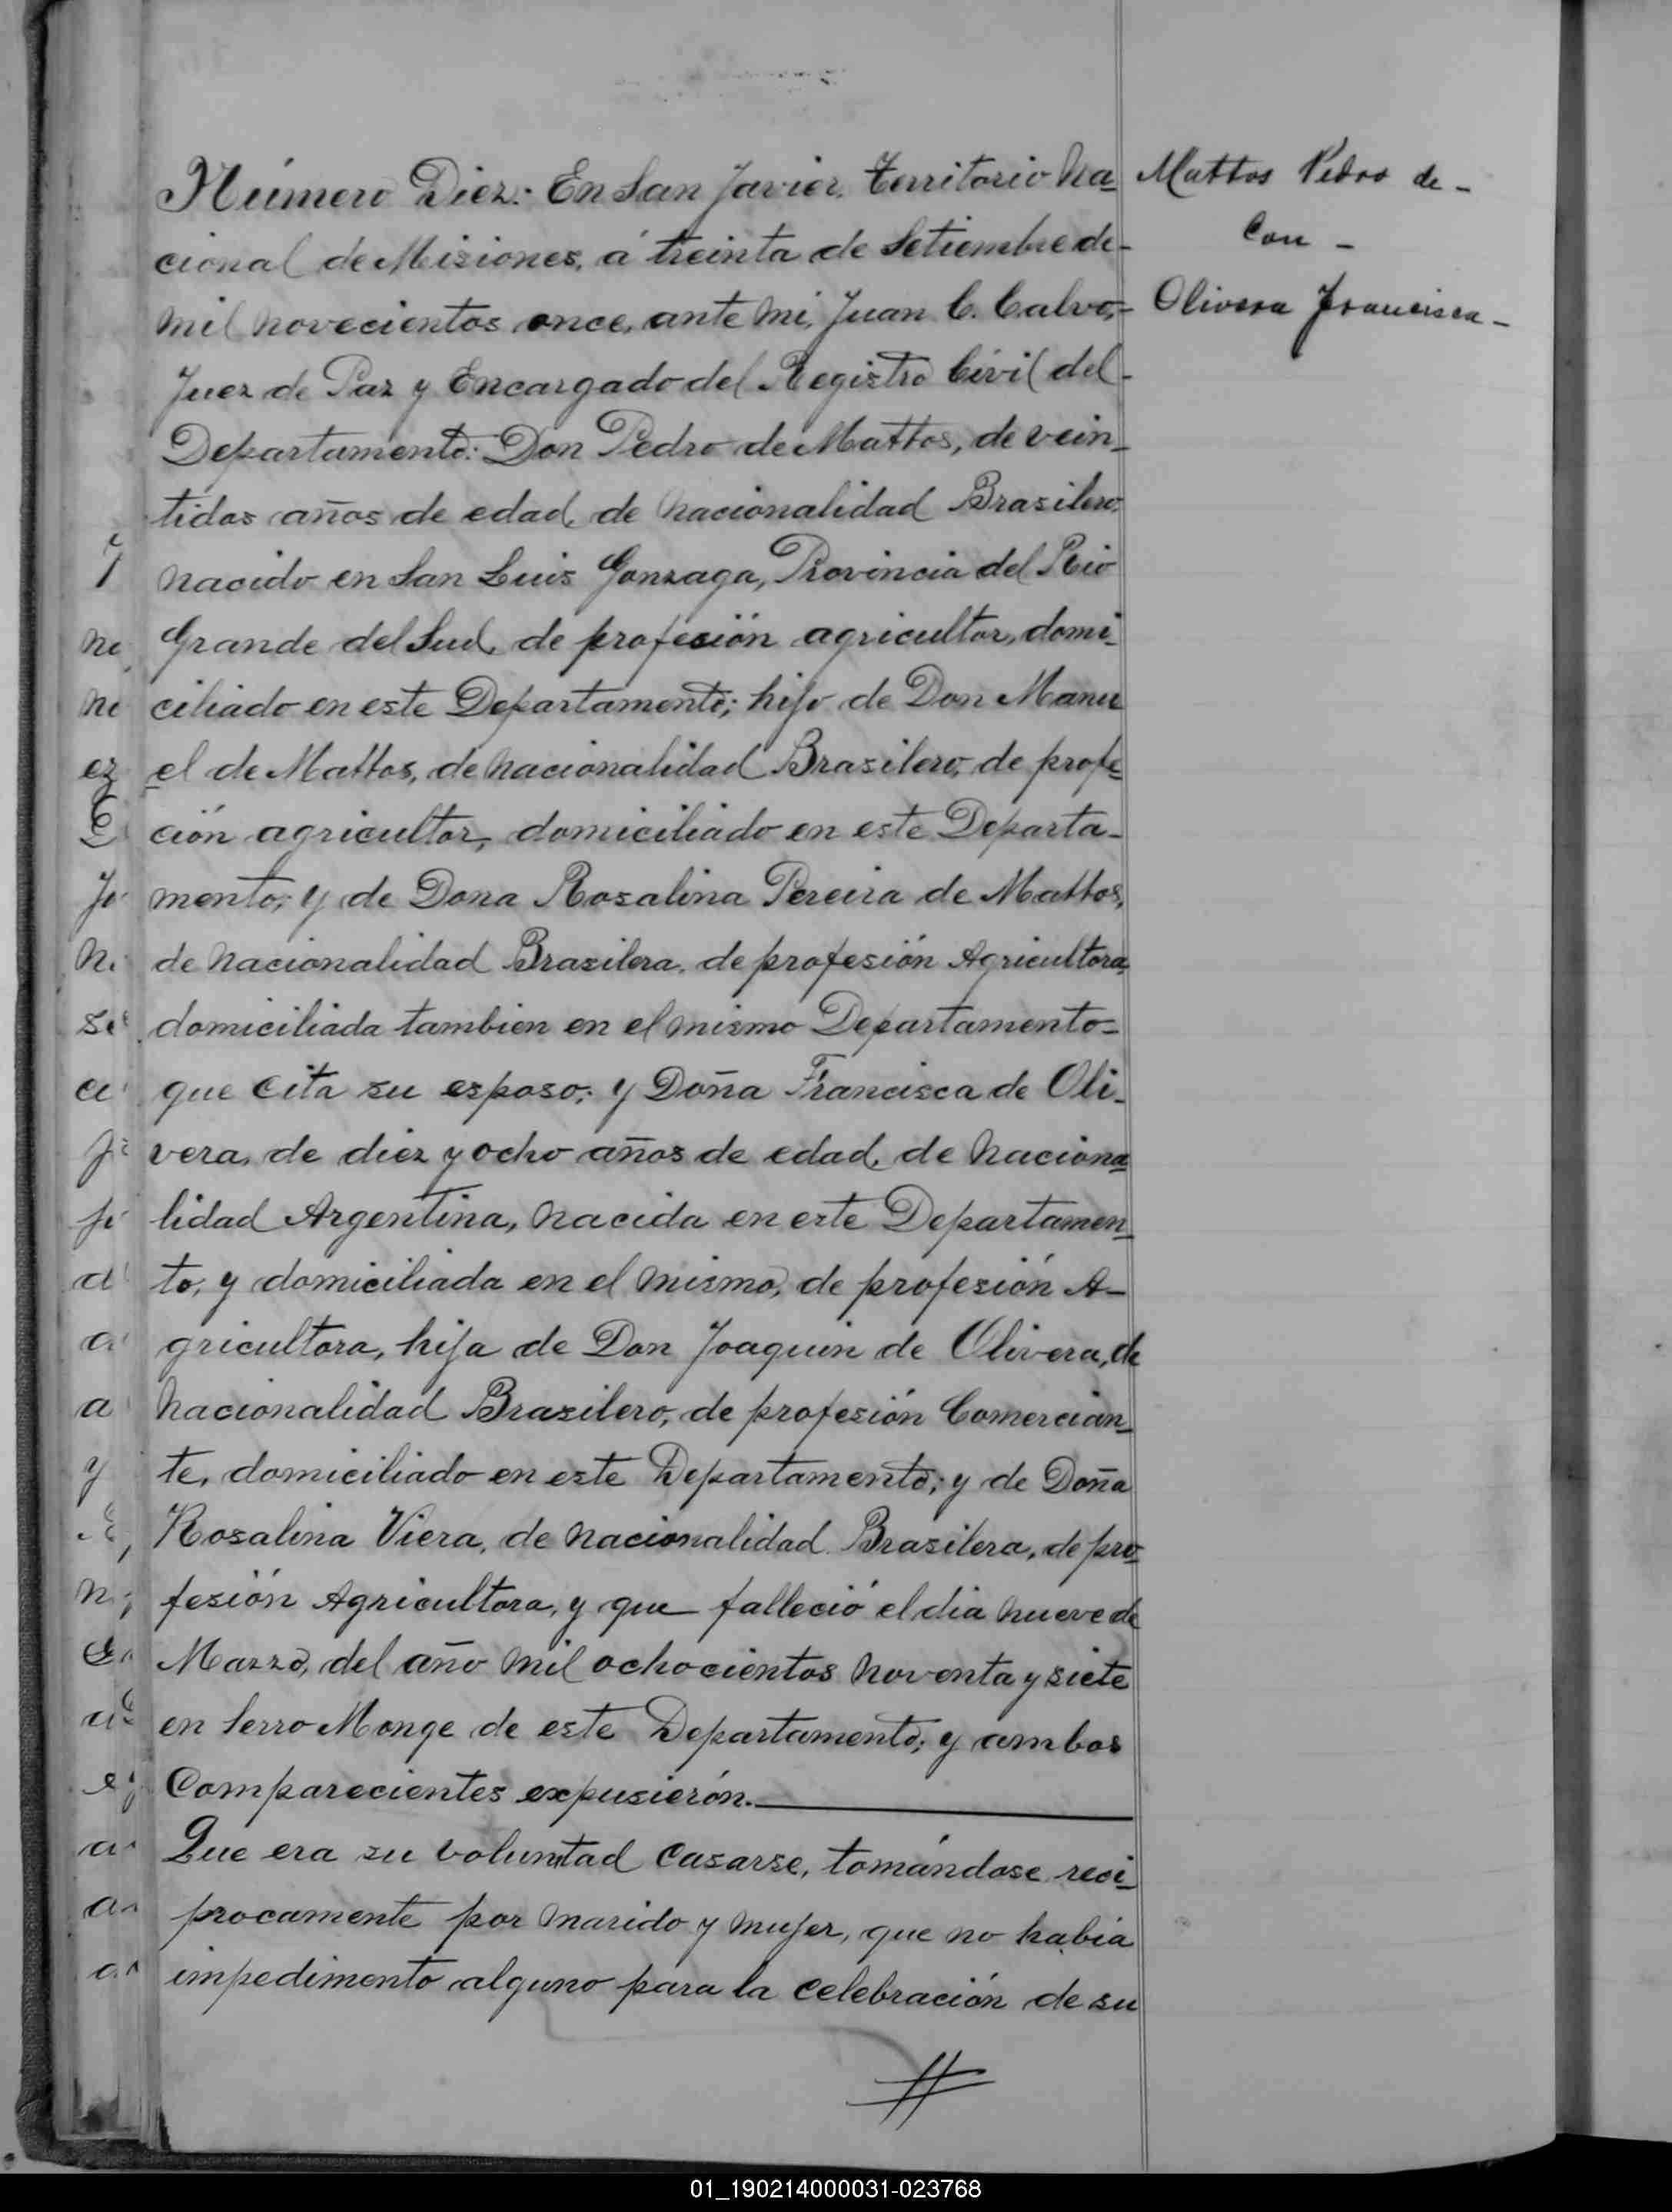 Número Diez: En San Javier, Territorio Na_
cional de Misiones, á treinta de Setiembre de-
mil novecientos once, ante mi, Juan C. Calvo,-
Juez de Paz y Encargado del Registro Civil del-
Departamento: Don Pedro de Mattos, de vein_
tidos años de edad, de nacionalidad Brasilero,
nacido en San Luis Gonzaga, Provincia del Rio
Grande del Sud, de profesión agricultor, domi_
ciliado en este Departamento; hijo de Don Manu
el de Mattos, de nacionalidad Brasilero, de profe_
ción agricultor, domiciliado en este Departa_
mento; y de Dona Rosalina Pereira de Mattos,
de nacionalidad Brasilera, de profesión Agricultora,
domiciliada tambien en el mismo Departamento-
que cita su esposo; y Doña Francisca de Oli_
vera, de diez y ocho años de edad, de naciona
lidad Argentina, nacida en este Departamen_
to, y domiciliada en el mismo, de profesión A_
gricultora, hija de Don Joaquin de Olivera, de
nacionalidad Brasilero, de profesión Comercian_
te, domiciliado en este Departamento; y de Doña
Rosalina Viera, de nacionalidad Brasilera, de pro_
fesión Agricultora, y que falleció el dia nueve de
Marzo, del año mil ochocientos noventa y siete
en Serro Monge de este Departamento; y ambos
Comparecientes expusierón.
Que era su voluntad casarse, tomándose reci_
procamente por marido y mujer, que no habia
impedimento alguno para la celebración de su
Mattos Pedro de -
Con -
Olivera Francisca -
01_190214000031-023768